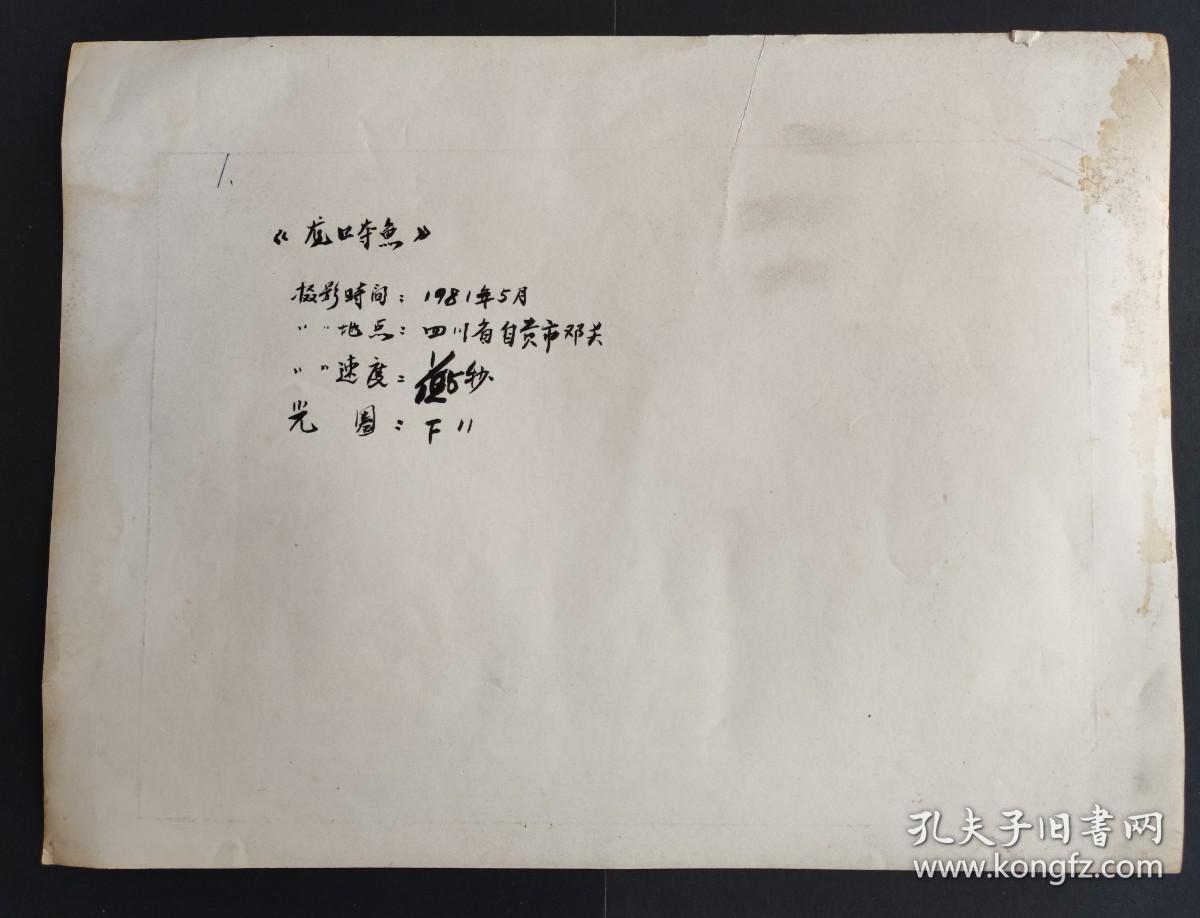 1.
《虎口夺魚》
摄影時间：1981年5月
〃 〃地点：四川省自贡市邓关
〃 〃速度：秒
光 圈：F11
孔夫子旧書网
www.kongfz.com